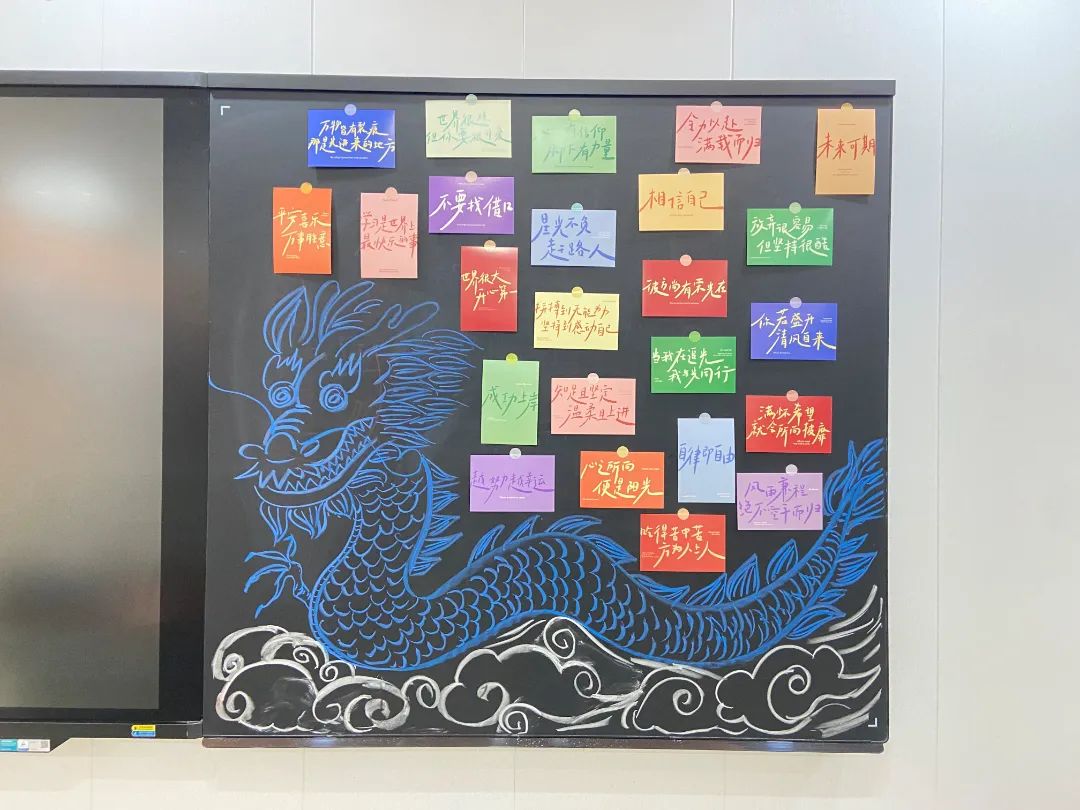 万物皆有裂痕
那是光进来的地方
世界很
但你要
有信仰
脚下有力量
全力以赴
满载而归
未来可期
平安喜乐
万事胜意
学习是世界上
最快乐的事
不要找借口
星光不负
赶路人
相信自己
放弃很容易
但坚持很酷
世界很大
开心第一
拼搏到无能为力
坚持到感动自己
有荣光在
你若盛开
清风自来
当我在追光
我与光同行
成功上岸
知足且坚定
温柔且上进
满怀希望
就会所向披靡
越努力越幸运
心之所向
便是阳光
自律即自由
风雨兼程
绝不空手而归
吃得苦中苦
方为人上人